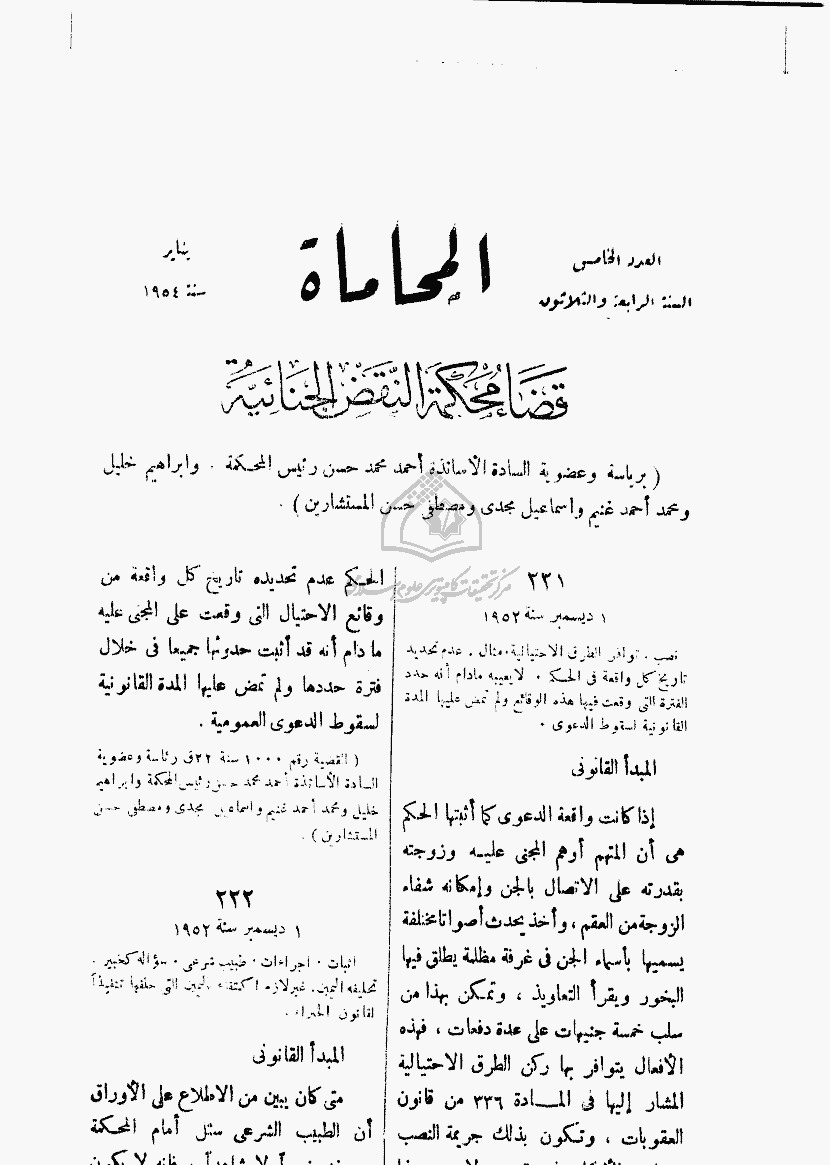 العدد الخامس
السنة الرابعة والثلاثون
المحاماة
يناير
سنة ١٩٥٤
قضاء محكمة النقض الجنائية
( برياسة وعضوية السادة الأساتذة أحمد محمد حسن رئيس المحكمة . وابراهيم خليل
ومحمد أحمد غنيم واسماعيل مجدى ومصطفى حسن المستشارين ) .
٢٢١
١ ديسمبر سنة ١٩٥٢
نصب . توافر الطرق الاحتيالية . مثال . عدم تحديد
تاريخ كل واقعة فى الحكم . لا يعيبه مادام أنه حدد
الفترة التى وقعت فيها هذه الوقائع ولم تمض عليها المدة
القانونية لسقوط الدعوى .
المبدأ القانونى
إذا كانت واقعة الدعوى كما أثبتها الحكم
هى أن المتهم أوهم المجنى عليه وزوجته
بقدرته على الاتصال بالجن وإمكانه شفاء
الزوجة من العقم ، وأخذ يحدث أصواتا مختلفة
يسميها بأسماء الجن فى غرفة مظلمة يطلق فيها
البخور ويقرأ التعاويذ ، وتمكن بهذا من
سلب خمسة جنيهات على عدة دفعات ، فهذه
الأفعال يتوافر بها ركن الطرق الاحتيالية
المشار إليها فى المادة ٣٣٦ من قانون
العقوبات ، وتكون بذلك جريمة النصب
الحكم عدم تحديده تاريخ كل واقعة من
وقائع الاحتيال التى وقعت على المجنى عليه
ما دام أنه قد أثبت حدوثها جميعا فى خلال
فترة حددها ولم تمض عليها المدة القانونية
لسقوط الدعوى العمومية .
( القضية رقم ١٠٠٠ سنة ٢٢ق رئاسة وعضوية
السادة الأساتذة أحمد محمد حسن رئيس المحكمة وابراهيم
خليل ومحمد أحمد غنيم واسماعيل مجدى ومصطفى حسن
المستشارين ) .
٢٢٢
١ ديسمبر سنة ١٩٥٢
اثبات . اجراءات . طبيب شرعى . سؤاله كخبير .
تحليفه اليمين . غير لازم اكتفاء باليمين التى حلفها تنفيذاً
لقانون الخبراء .
المبدأ القانونى
متى كان يبين من الاطلاع على الأوراق
أن الطبيب الشرعى سئل أمام المحكمة